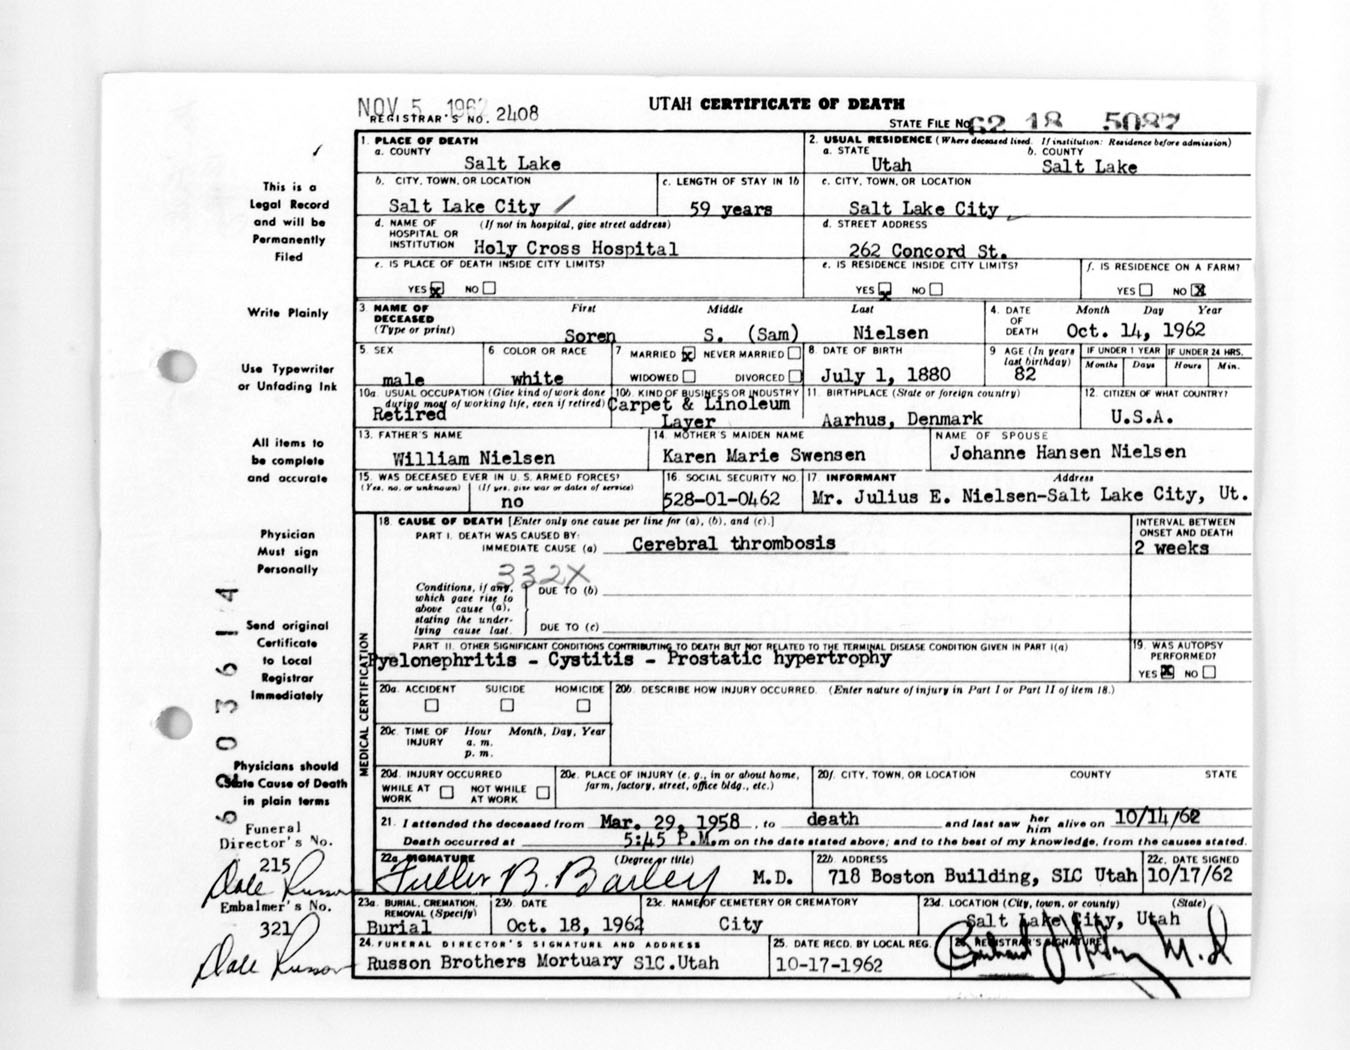 NOV 5 1962
REGISTRAR'S NO. 2408
UTAH CERTIFICATE OF DEATH
STATE FILE NO. 62 18 5087
This is a
Legal Record
and will be
Permanently
Filed
Write Plainly
Use Typewriter
or Unfading Ink
All items to
be complete
and accurate
Physician
Must sign
Personally
Send original
Certificate
to Local
Registrar
Immediately
Physicians should
state Cause of Death
in plain terms
Funeral
Director's No.
215
Dale Russon
Embalmer's No.
321
Dale Russon
1. PLACE OF DEATH
a. COUNTY
Salt Lake
2. USUAL RESIDENCE (Where deceased lived. If institution: Residence before admission)
a. STATE b. COUNTY
Utah Salt Lake
b. CITY, TOWN, OR LOCATION
Salt Lake City
c. LENGTH OF STAY IN 1b
59 years
c. CITY, TOWN, OR LOCATION
Salt Lake City
d. NAME OF HOSPITAL OR INSTITUTION (If not in hospital, give street address)
Holy Cross Hospital
d. STREET ADDRESS
262 Concord St.
e. IS PLACE OF DEATH INSIDE CITY LIMITS?
YES X NO
e. IS RESIDENCE INSIDE CITY LIMITS?
YES X NO
f. IS RESIDENCE ON A FARM?
YES NO X
3. NAME OF DECEASED (Type or print)
First Middle Last
Soren S. (Sam) Nielsen
4. DATE OF DEATH
Month Day Year
Oct. 14, 1962
5. SEX
male
6. COLOR OR RACE
white
7. MARRIED X NEVER MARRIED
WIDOWED DIVORCED
8. DATE OF BIRTH
July 1, 1880
9. AGE (In years last birthday)
82
IF UNDER 1 YEAR
Months Days
IF UNDER 24 HRS.
Hours Min.
10a. USUAL OCCUPATION (Give kind of work done during most of working life, even if retired)
Retired
10b. KIND OF BUSINESS OR INDUSTRY
Carpet & Linoleum
Layer
11. BIRTHPLACE (State or foreign country)
Aarhus, Denmark
12. CITIZEN OF WHAT COUNTRY?
U.S.A.
13. FATHER'S NAME
William Nielsen
14. MOTHER'S MAIDEN NAME
Karen Marie Swensen
NAME OF SPOUSE
Johanne Hansen Nielsen
15. WAS DECEASED EVER IN U. S. ARMED FORCES?
(Yes, no, or unknown) (If yes, give war or dates of service)
no
16. SOCIAL SECURITY NO.
528-01-0462
17. INFORMANT Address
Mr. Julius E. Nielsen-Salt Lake City, Ut.
MEDICAL CERTIFICATION
18. CAUSE OF DEATH [Enter only one cause per line for (a), (b), and (c).]
PART I. DEATH WAS CAUSED BY:
IMMEDIATE CAUSE (a) Cerebral thrombosis
INTERVAL BETWEEN ONSET AND DEATH
2 weeks
332X
Conditions, if any, which gave rise to above cause (a), stating the underlying cause last.
DUE TO (b)
DUE TO (c)
PART II. OTHER SIGNIFICANT CONDITIONS CONTRIBUTING TO DEATH BUT NOT RELATED TO THE TERMINAL DISEASE CONDITION GIVEN IN PART I(a)
Pyelonephritis - Cystitis - Prostatic hypertrophy
19. WAS AUTOPSY PERFORMED?
YES X NO
20a. ACCIDENT SUICIDE HOMICIDE
20b. DESCRIBE HOW INJURY OCCURRED. (Enter nature of injury in Part I or Part II of item 18.)
20c. TIME OF INJURY Hour Month, Day, Year
a. m.
p. m.
20d. INJURY OCCURRED
WHILE AT WORK NOT WHILE AT WORK
20e. PLACE OF INJURY (e. g., in or about home, farm, factory, street, office bldg., etc.)
20f. CITY, TOWN, OR LOCATION COUNTY STATE
21. I attended the deceased from Mar. 29, 1958, to death and last saw her him alive on 10/14/62
Death occurred at 5:45 P.M. m on the date stated above; and to the best of my knowledge, from the causes stated.
22a. SIGNATURE (Degree or title)
Fuller B. Bailey M.D.
22b. ADDRESS
718 Boston Building, SLC Utah
22c. DATE SIGNED
10/17/62
23a. BURIAL, CREMATION, REMOVAL (Specify)
Burial
23b. DATE
Oct. 18, 1962
23c. NAME OF CEMETERY OR CREMATORY
City
23d. LOCATION (City, town, or county) (State)
Salt Lake City, Utah
24. FUNERAL DIRECTOR'S SIGNATURE AND ADDRESS
Russon Brothers Mortuary SLC.Utah
25. DATE RECD. BY LOCAL REG.
10-17-1962
26. REGISTRAR'S SIGNATURE
M.D